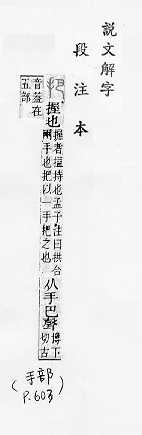 說文解字
段注本
握也握者搤持也孟子注曰拱合兩手也把以一手把之也从手巴聲博下切古
音葢在五部
(手部
P.603)